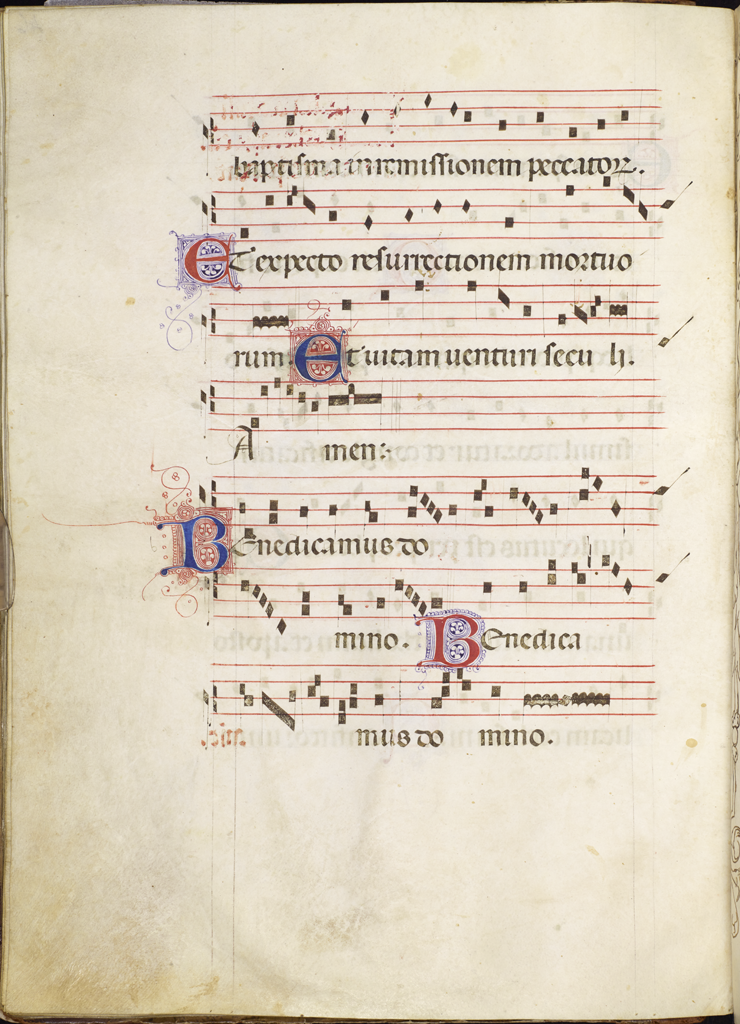 baptisma in remissionem peccatoꝝ.
Et expecto resurrectionem mortuo
rum. Et uitam uenturi secu li.
A men:
Benedicamus do
mino. Benedica
mus do mino.